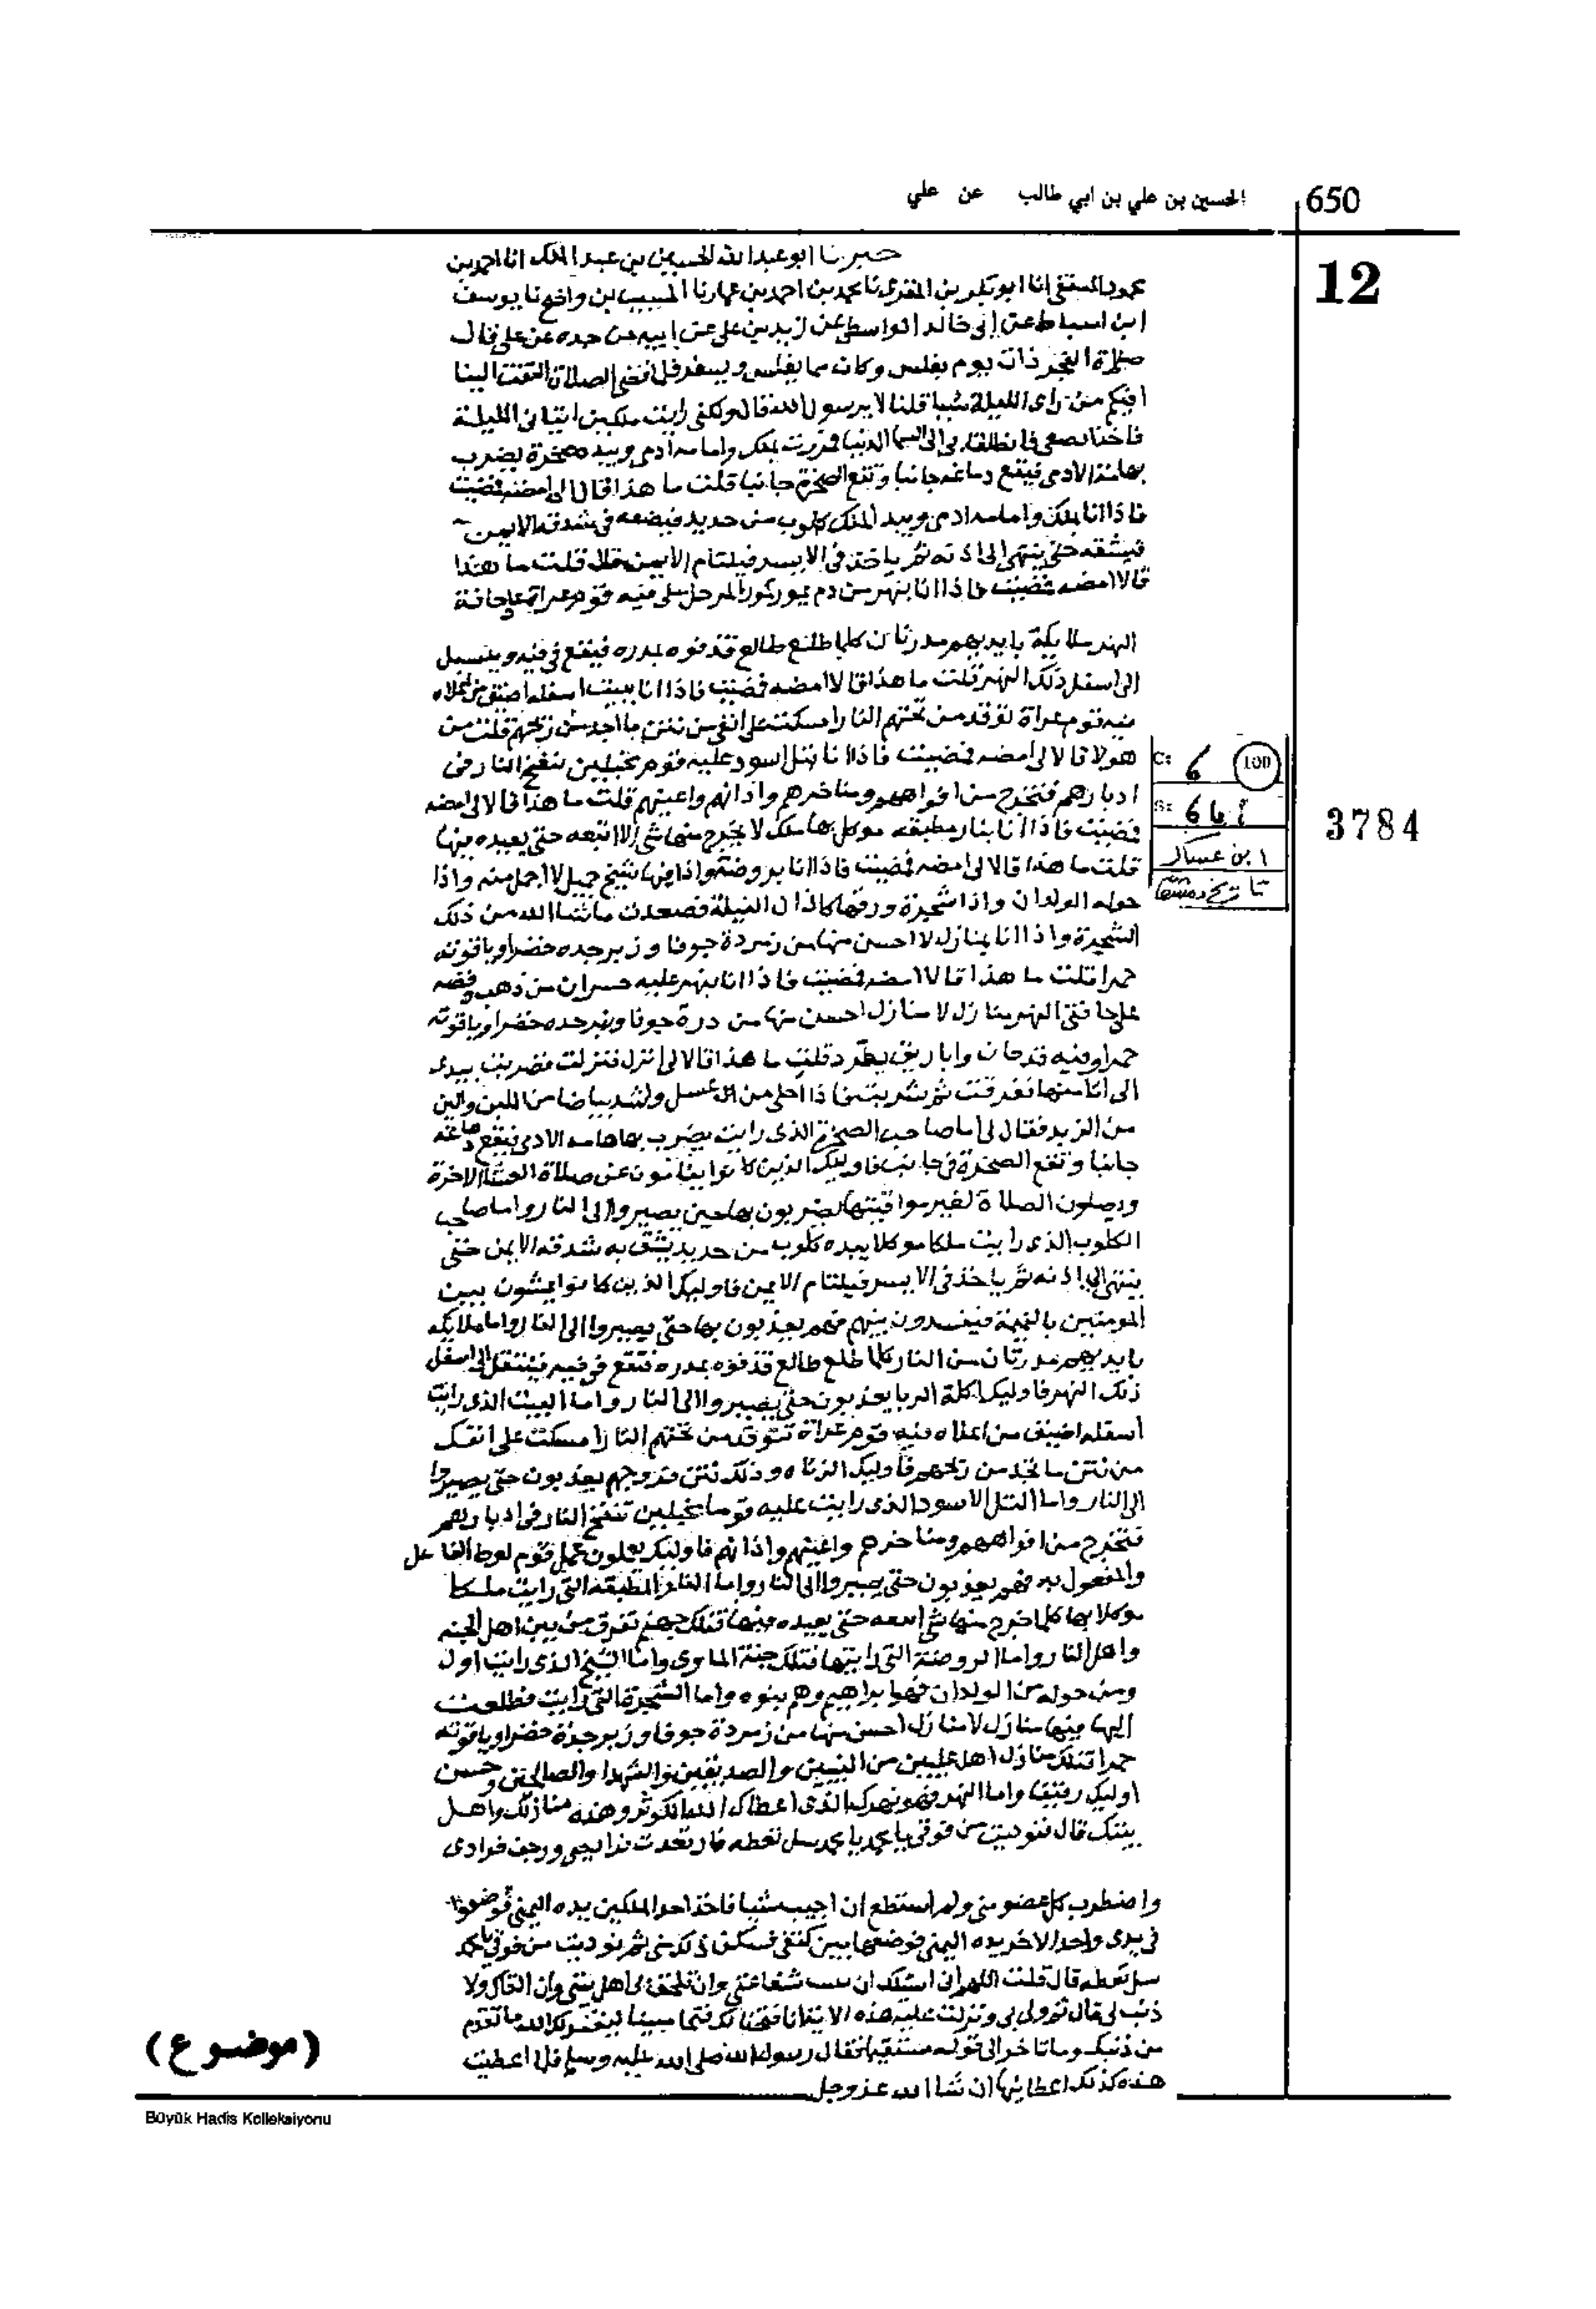 650
الحسين بن علي بن ابي طالب عن علي
12
خبرنا ابو عبد الله الحسين بن عبد الملك انا احمد بن
محمود انا ابو بكر بن المقرى نا محمد بن احمد بن عمار نا المسيب بن واضح نا يوسف
ابن اسباط عن ابى خالد الواسطى عن زيد بن على عن ابيه عن جده عن على قال
صلاة الفجر ذات يوم بغلس وكان مما يغلس ويسفر فلما قضى الصلاة التفت الينا
افيكم من راى الليلة شيا قلنا لا يرسول الله قال ولكنى رايت ملكين اتيانى الليلة
فاخذا بضبعى فانطلقا بى الى السما الدنيا فمررت بملك وامامه ادمى وبيده صخرة يضرب
بهامة الادمى فيقع دماغه جانبا وتقع الصخرة جانبا قلت ما هذا قالا لى امضه فمضيت
فاذا انا بملك وامامه ادمى وبيد الملك كلوب من حديد فيضعه فى شدقه الايمن
فيشقه حتى ينتهى الى اذنه ثم ياخذ فى الايسر فيلتام الايمن قال قلت ما هذا
قالا امضه فمضيت فاذا انا بنهر من دم يمور كمور المرجل على فيه قوم عراة على حافة
النهر ملايكة بايديهم مدرتان كلما طلع طالع قذفوه بمدره فيقع فى فيه وينسل
الى اسفل ذلك النهر قلت ما هذا قالا امضه فمضيت فاذا انا ببيت اسفله اضيق من اعلاه
فيه قوم عراة توقد من تحتهم النار امسكت على انفى من نتن ما اجد من ريحهم قلت من
هولا قالا لى امضه فمضيت فاذا انا بتل اسود عليه قوم مخبلين تنفخ النار فى
ادبارهم فتخرج من افواههم ومناخرهم واذانهم واعينهم قلت ما هذا قالا لى امضه
فمضيت فاذا انا بنار مطبقه موكل بها ملك لا يخرج منها شى الا اتبعه حتى يعيده فيها
قلت ما هذا قالا لى امضه فمضيت فاذا انا بروضة واذا فيها شيخ جميل لا اجمل منه واذا
حوله الولدان واذا شجرة ورقها كاذان الفيلة فصعدت ما شا الله من ذلك
الشجرة واذا انا بمنازل لا احسن منها من زمردة جوفا وزبرجده خضرا وياقوته
حمرا قلت ما هذا قالا امضه فمضيت فاذا انا بنهر عليه جسران من ذهب وفضه
على حافتى النهر منازل لا منازل احسن منها من درة جوفا وزبرجده خضرا وياقوته
حمرا وفيه قدحان واباريق يطرد قلت ما هذا قالا لى انزل فنزلت فضربت بيدى
الى انا منها فغرفت ثم شربت فاذا احلى من العسل واشد بياضا من اللبن والين
من الزبد فقال لى اما صاحب الصخرة الذى رايت يضرب بها هامه الادمى فيقع دماغه
جانبا وتقع الصخرة فى جانب فاوليك الذين كانوا ينامون عن صلاة العشا الاخرة
ويصلون الصلاة لغير مواقيتها يضربون بها حين يصيروا الى النار واما صاحب
الكلوب الذى رايت ملكا موكلا بيده كلوب من حديد يشق به شدقه الايمن حتى
ينتهى الى اذنه ثم ياخذ فى الايسر فيلتام الايمن فاوليك الذين كانوا يمشون بين
المومنين بالنميمة فيفسدون بينهم فهم يعذبون بها حتى يصيروا الى النار واما ملايكه
بايديهم مدرتان من النار كلما طلع طالع قذفوه بمدره فتقع فى فيه فينتقل الى اسفل
ذلك النهر فاوليك اكلة الربا يعذبون حتى يصيروا الى النار واما البيت الذى رايت
اسفله اضيق من اعلاه فيه قوم عراة تتوقد من تحتهم النار امسكت على انفك
من نتن ما تجد من ريحهم فاوليك الزناه وذلك نتن فروجهم يعذبون حتى يصيروا
الى النار واما التل الاسود الذى رايت عليه قوما مخبلين تنفخ النار فى ادبارهم
فتخرج من افواههم ومناخرهم واعينهم واذانهم فاوليك يعملون عمل قوم لوط الفاعل
والمفعول به فهم يعذبون حتى يصيروا الى النار واما النار المطبقه التى رايت ملكا
موكلا بها كلما خرج منها شى اتبعه حتى يعيده فيها فتلك جهنم تفرق من بين اهل الجنه
واهل النار واما الروضة التى رايتها فتلك جنة الماوى واما الشيخ الذى رايت اول
ومن حوله من الولدان فهو ابراهيم وهم بنوه واما الشجرة التى رايت فطلعت
اليها فيها منازل لا منازل احسن منها من زمردة جوفا وزبرجدة خضرا وياقوته
حمرا فتلك منازل اهل عليين من النبيين والصديقين والشهدا والصالحين وحسن
اوليك رفيقا واما النهر فهو نهرك الذى اعطاك الله الكوثر وهذه منازلك واهل
بيتك قال فنوديت من فوقى يا محمد يا محمد سل تعطه فارتعدت فرايصى ورجف فوادى
واضطرب كل عضو منى ولم استطع ان اجيب شيا فاخذ احد الملكين بيده اليمنى فوضعها
فى يدى واخذ الاخر يده اليمنى فوضعها بين كتفى فسكن ذلك منى ثم نوديت من فوقى يا محمد
سل تعطه قال قلت اللهم انى اسئلك ان تثبت شفاعتى وان تلحق بى اهل بيتى وان القاك ولا
ذنب لى قال ثم ولى بى ونزلت عليه هذه الاية انا فتحنا لك فتحا مبينا ليغفر لك الله ما تقدم
من ذنبك وما تاخر الى قوله مستقيما فقال رسول الله صلى الله عليه وسلم فلما اعطيت
هذه كذلك اعطانيها ان شا الله عز وجل
C: 6 100
S:
ابن عساكر
تاريخ دمشق
3784
(موضوع)
Büyük Hadis Kolleksiyonu